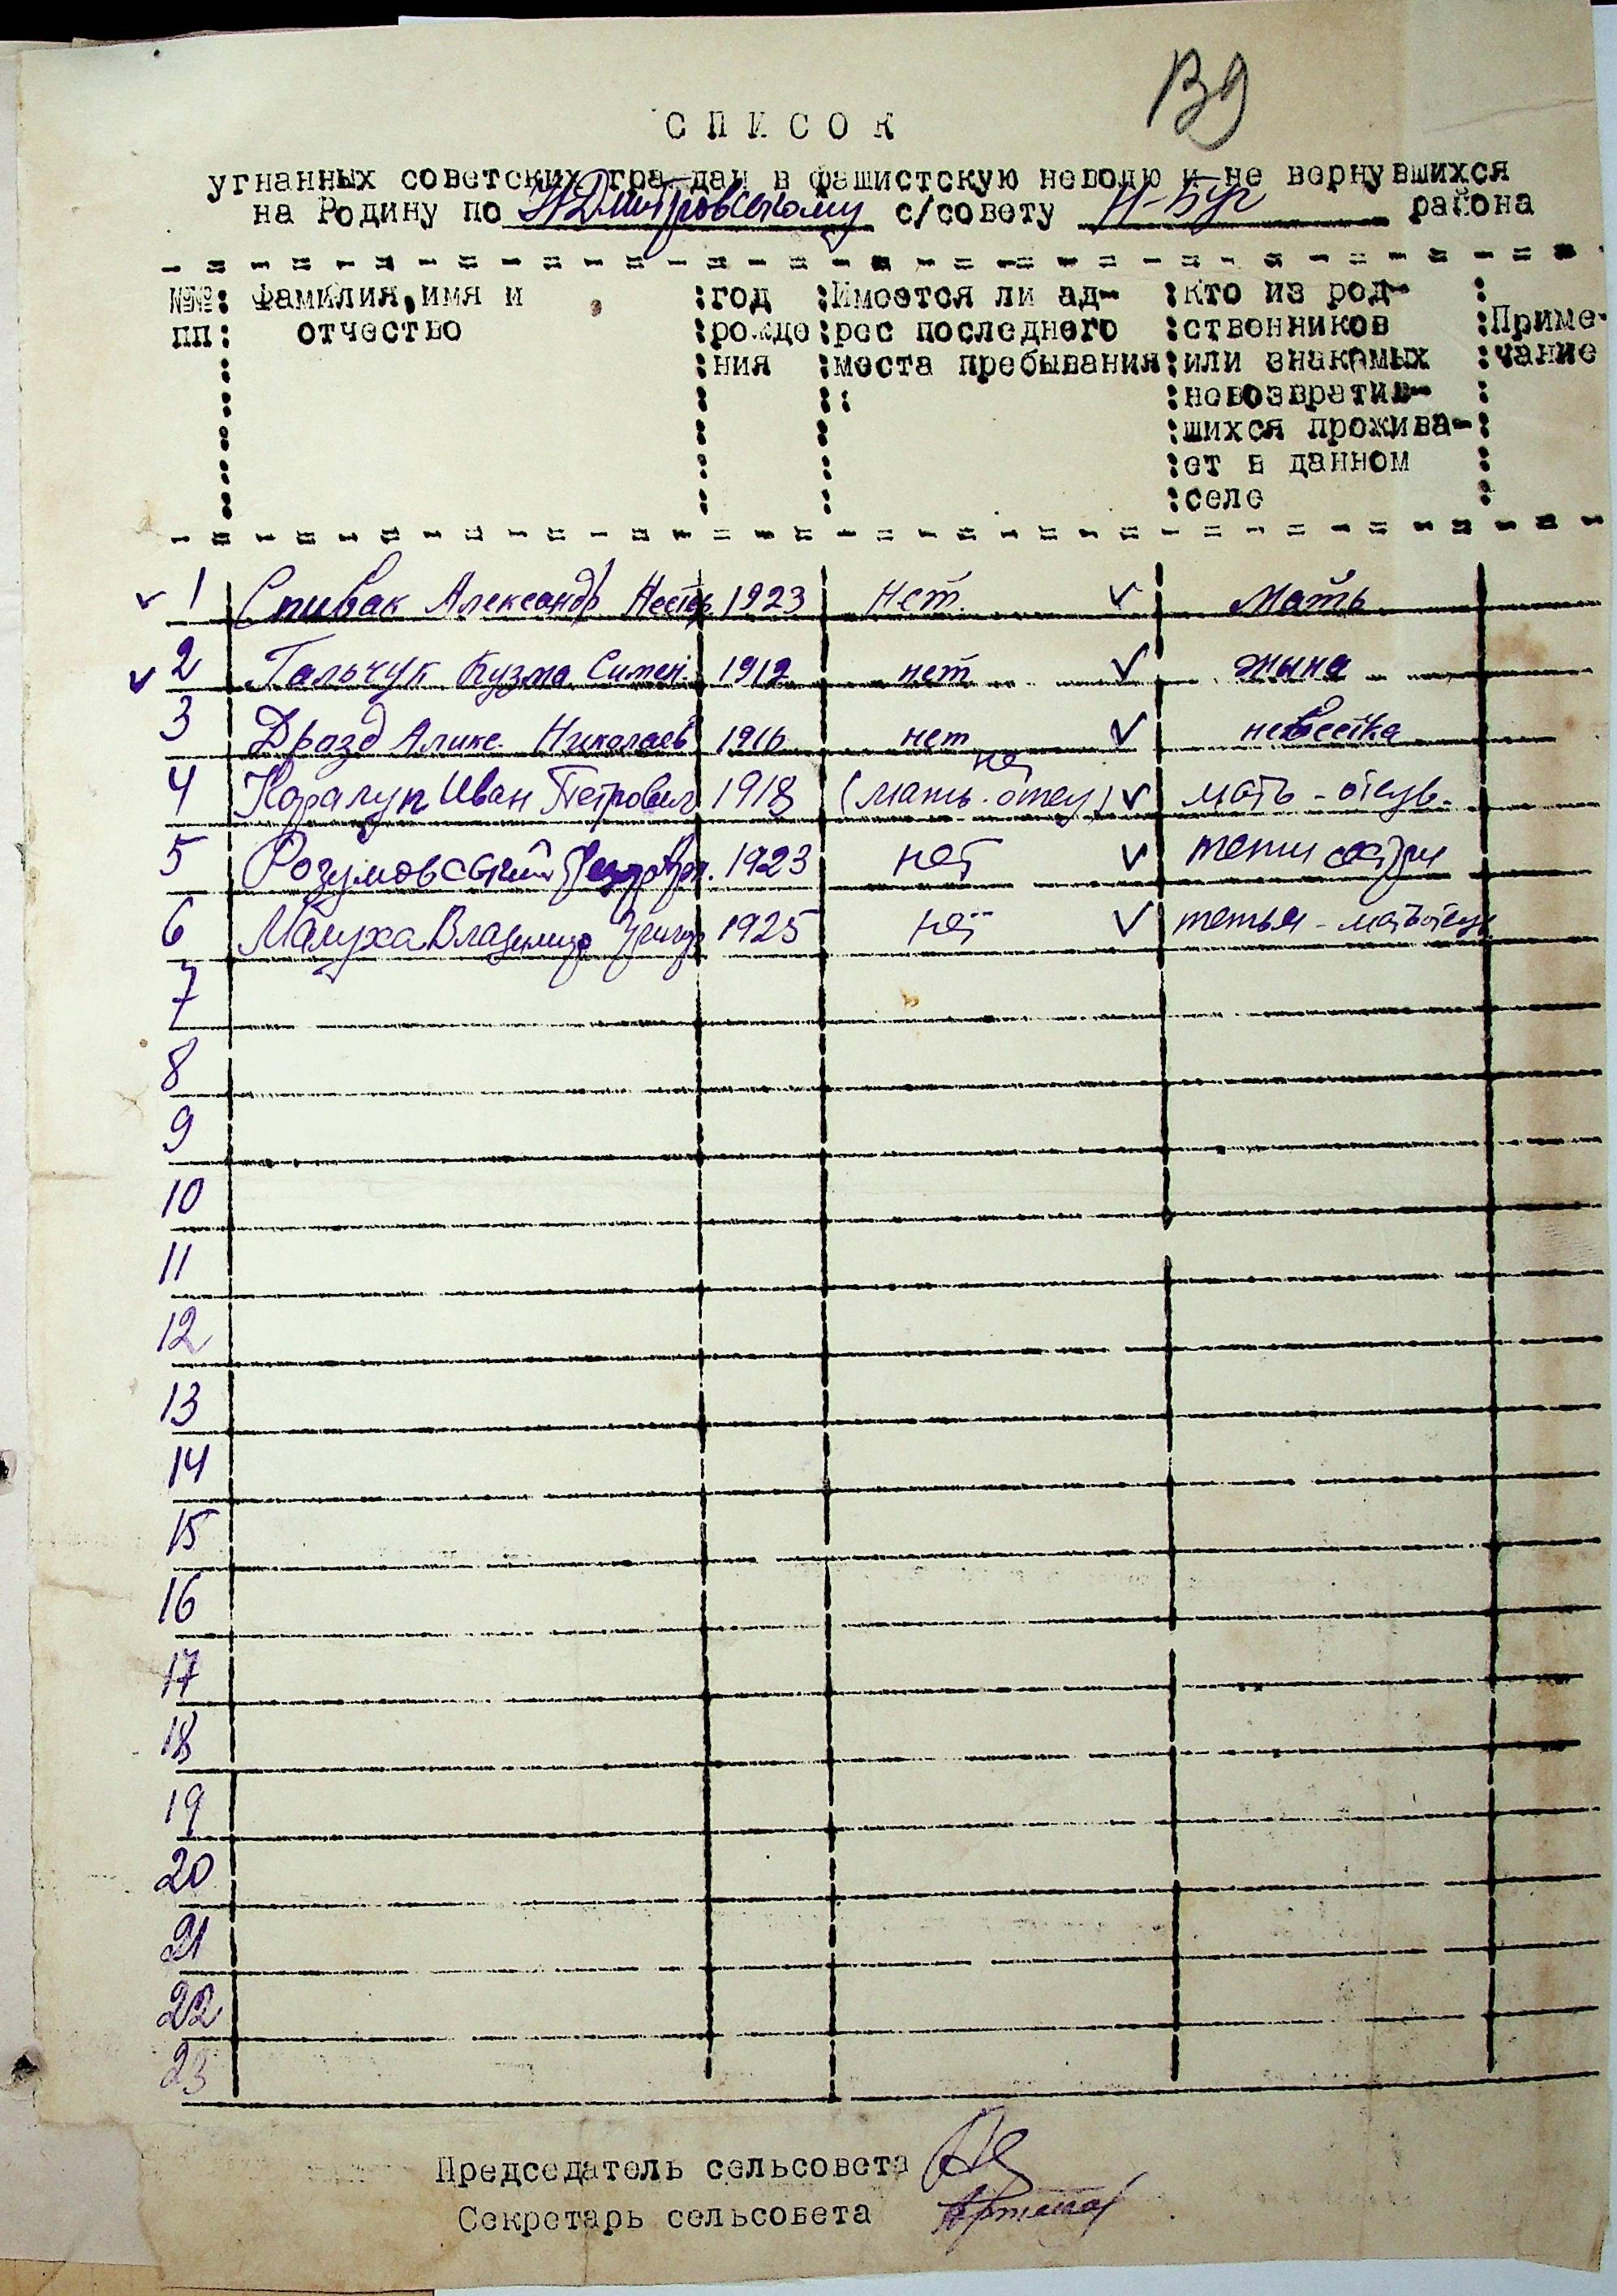 С П И С О К
угнанных советских граждан в фашистскую неволю и не вернувшихся
на Родину по Н Дмитровскому с/совету Н-Буг района
№№ : Фамилия, имя и : год : Имеется ли ад- : Кто из род- :
пп : отчество : рожде : рес последнего : ственников : Приме-
: : ния : места пребывания : или знакомых : чание
: невозврати-
: шихся прожива- :
: ет в данном :
: селе :
1 Спивак Александр Нестер 1923 Нет. ✓ Мать
2 Гальчук Кузма Симен. 1912 нет ✓ жына
3 Дрозд Алике. Николаев 1916 нет ✓ невестка
нет
4 Каралуп Иван Петрович 1918 (мать-отец) ✓ мать - отець.
5 Розумовский 1923 нет ✓ тети
6 Малуха Владимир Григор 1925 нет ✓ тетья -
7
8
9
10
11
12
13
14
15
16
17
18
19
20
21
22
23
Председатель сельсовета
Секретарь сельсовета